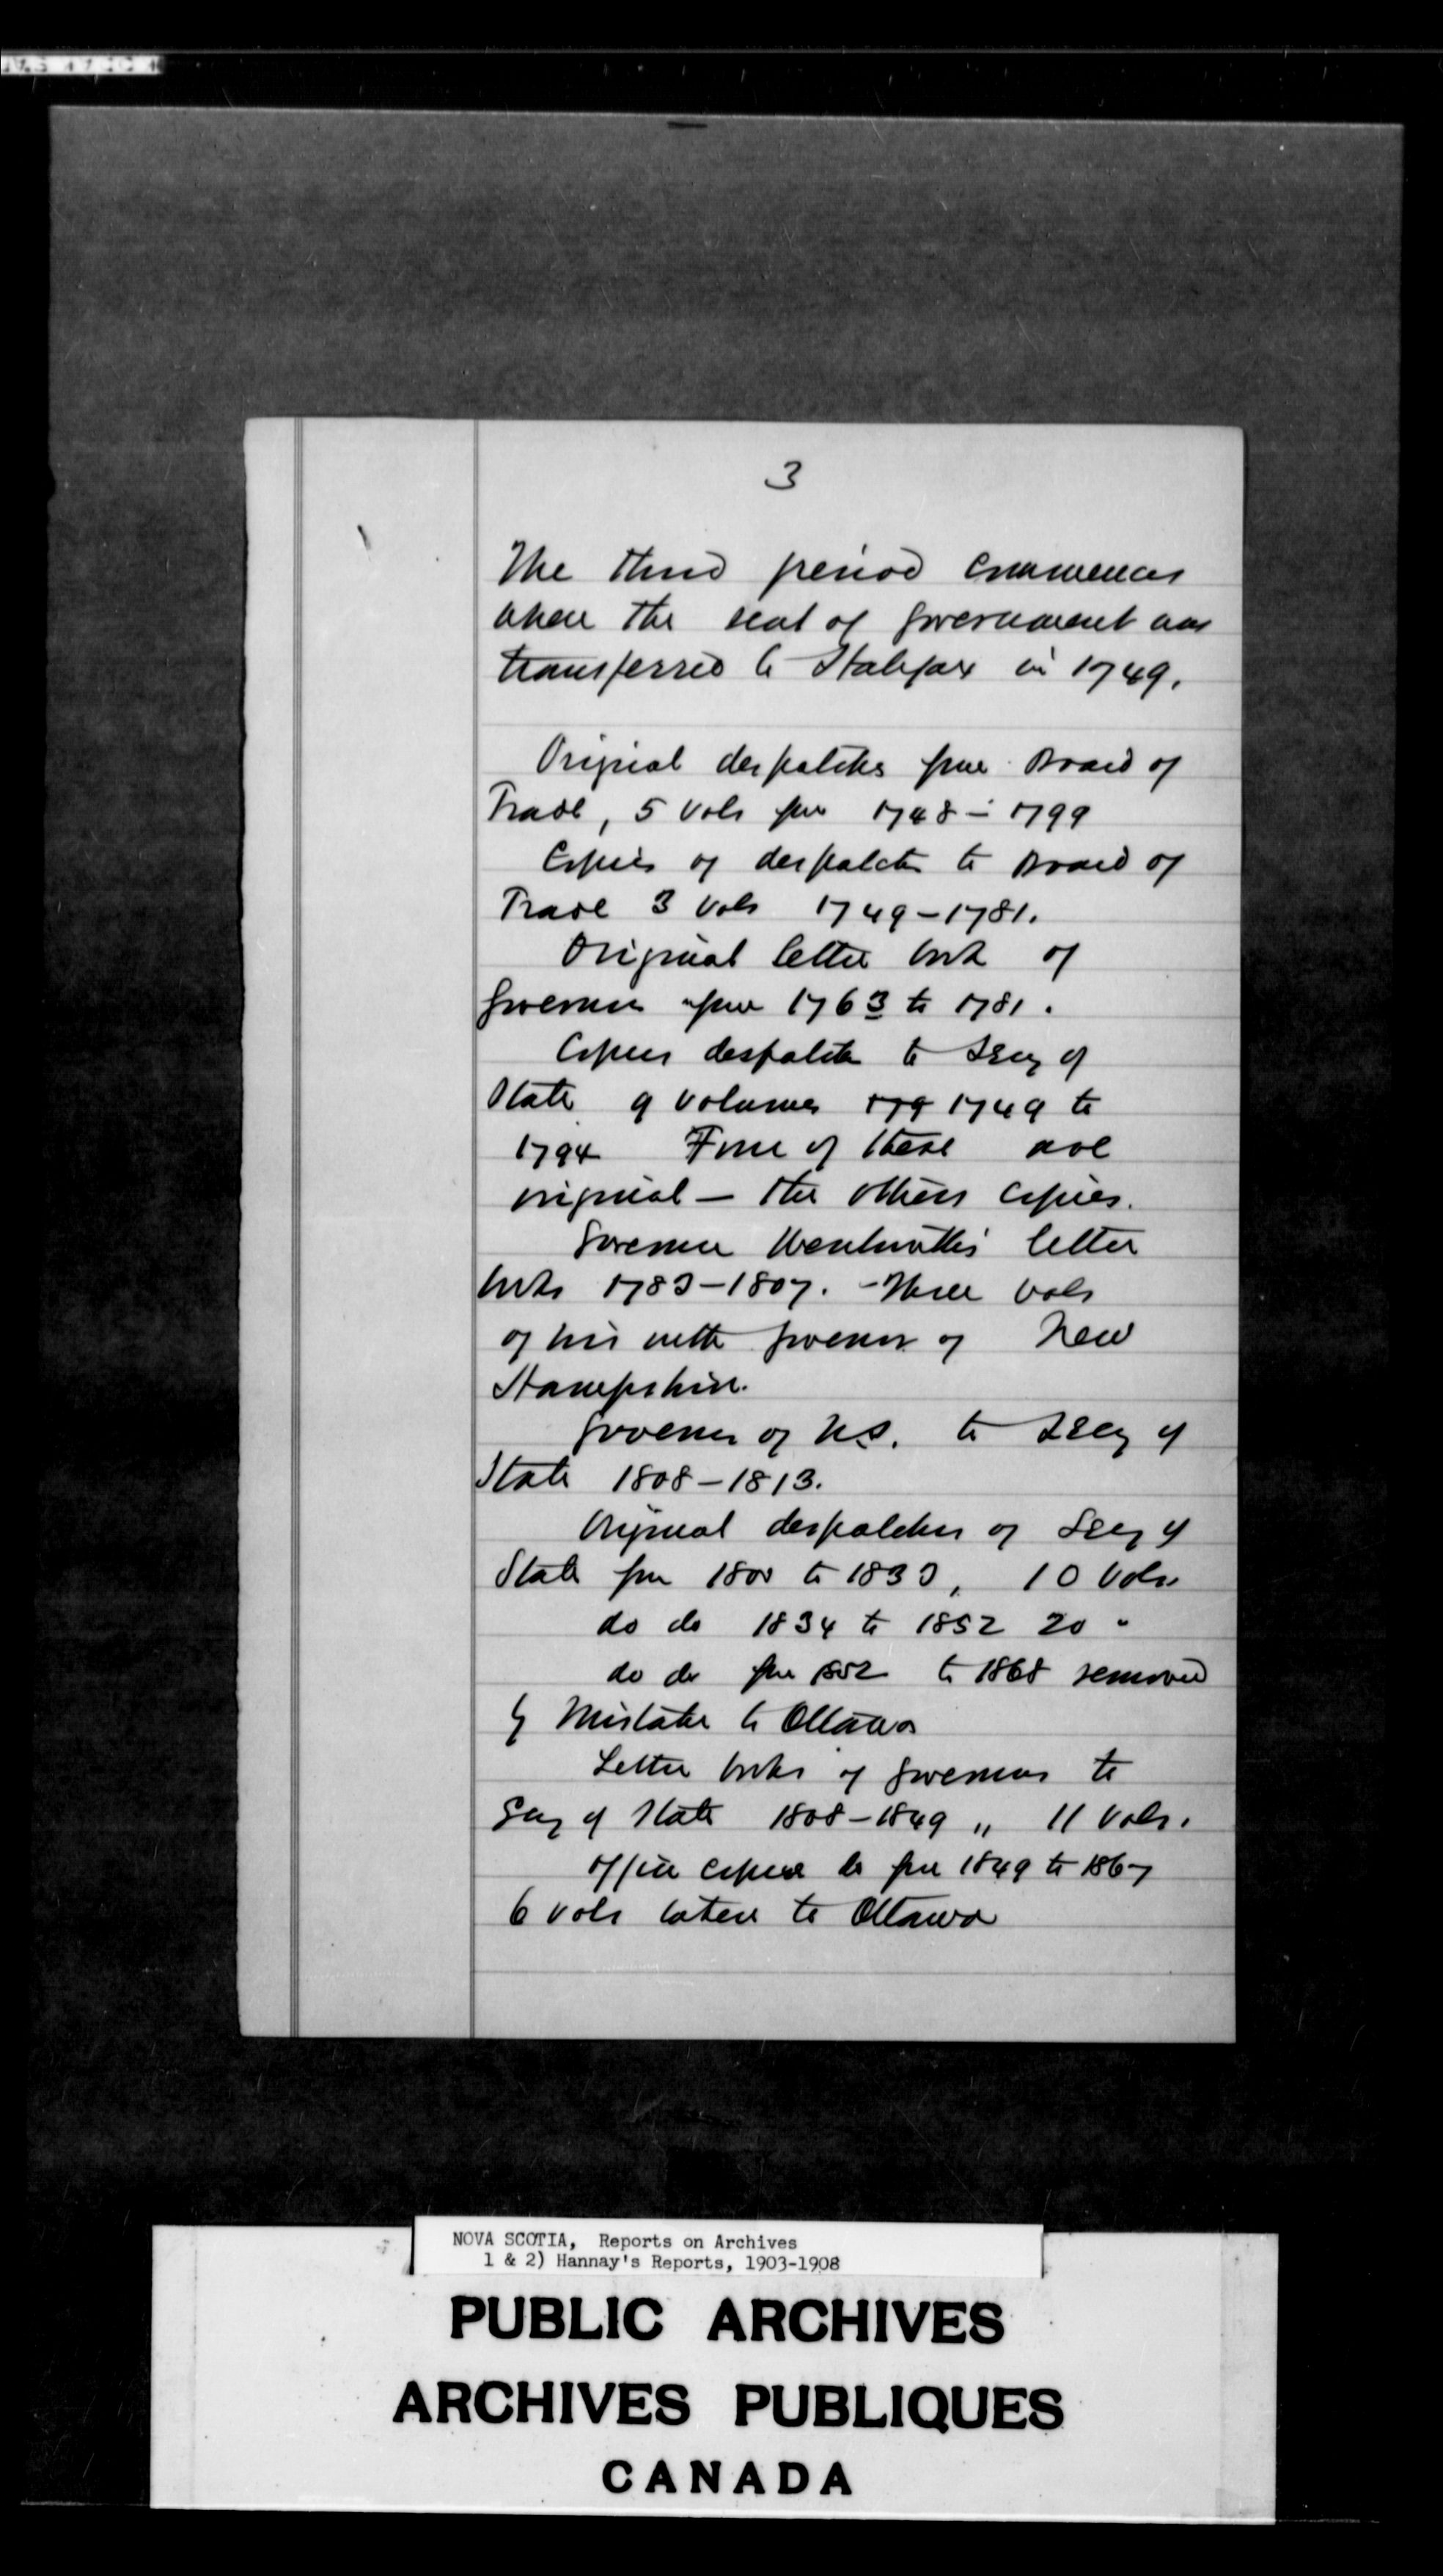 3
The third period commences
when the seat of government was
transferred to Halifax in 1749.
Original despatches from Board of
Trade, 5 vols from 1748 - 1799
Copies of despatches to Board of
Trade 3 vols 1749-1781.
Original letter book of
Governor from 1763 to 1781.
Copies despatches to Secy of
State 9 volumes 179 1749 to
1794 Four of these are
original - the others copies.
Governor Wentworth's letter
books 1783-1807. - Three vols
of his with Governor of New
Hampshire.
Governor of N.S. to Secy of
State 1808-1813.
Original despatches of Secy of
State from 1800 to 1833, 10 vols.
do do 1834 to 1852 20 "
do do from 1852 to 1868 removed
by mistake to Ottawa
Letter books of Governors to
Secy of State 1808-1849 " 11 vols.
Office copies do from 1849 to 1867
6 vols taken to Ottawa
NOVA SCOTIA, Reports on Archives
1 & 2) Hannay's Reports, 1903-1908
PUBLIC ARCHIVES
ARCHIVES PUBLIQUES
CANADA